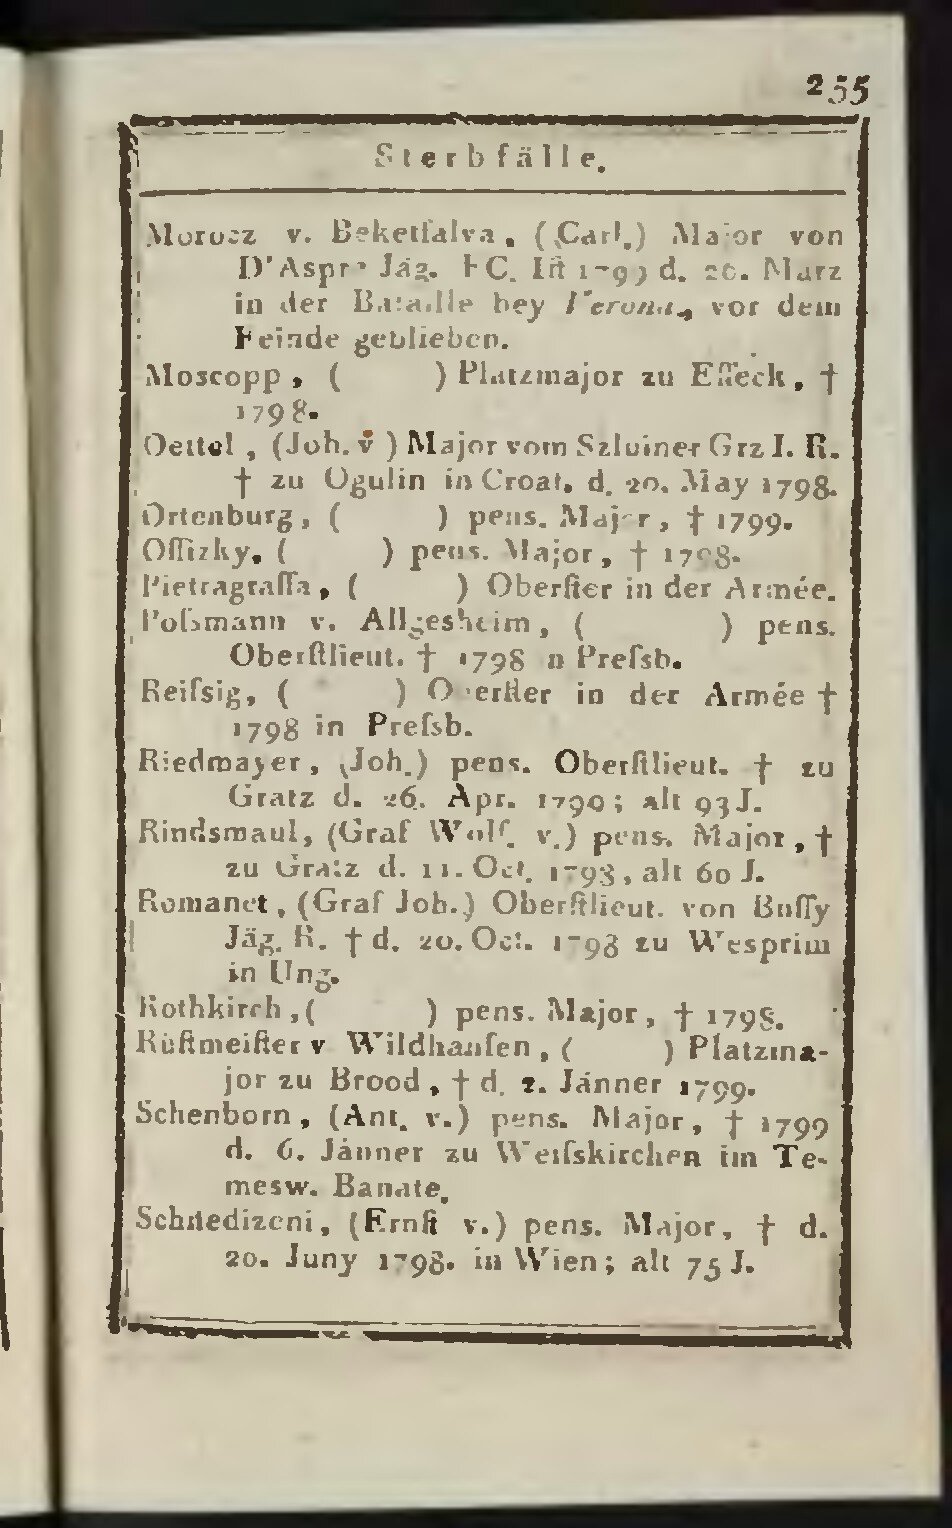 255
Sterbfälle.
Morocz v. Beketfalva, (Carl.) Major von
D'Aspre Jäg. FC. Iſt 1799 d. 26. Marz
in der Bataille bey Verona, vor dem
Feinde geblieben.
Moscopp, ( ) Platzmajor zu Eſſeck, †
1798.
Oettel, (Joh. v ) Major vom Szluiner Grz I. R.
† zu Ogulin in Croat. d. 20. May 1798.
Ortenburg, ( ) pens. Major, † 1799.
Oſſizky, ( ) pens. Major, † 1798.
Pietragraſſa, ( ) Oberſter in der Armée.
Poſsmann v. Allgesheim, ( ) pens.
Oberſtlieut. † 1798 n Preſsb.
Reiſsig, ( ) Oberſter in der Armée †
1798 in Preſsb.
Riedmayer, (Joh.) pens. Oberſtlieut. † zu
Gratz d. 26. Apr. 1790; alt 93 J.
Rindsmaul, (Graf Wolf. v.) pens. Major, †
zu Gratz d. 11. Oct. 1798, alt 60 J.
Romanet, (Graf Joh.) Oberſtlieut. von Buſſy
Jäg. R. † d. 20. Oct. 1798 zu Wesprim
in Ung.
Rothkirch, ( ) pens. Major, † 1798.
Rüſtmeiſter v Wildhauſen, ( ) Platzma-
jor zu Brood, † d. 2. Jänner 1799.
Schenborn, (Ant. v.) pens. Major, † 1799
d. 6. Jänner zu Weiſskirchen im Te-
mesw. Banate.
Schnedizeni, (Ernſt v.) pens. Major, † d.
20. Juny 1798. in Wien; alt 75 J.